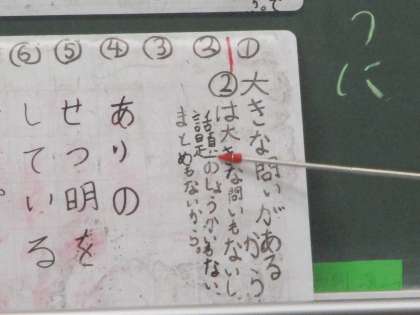 つに
① ② ③ ④ ⑤ ⑥
大きな問いがあるから
②は大きな問いもないし
話題のしょうかいもない
まとめもないから。
ありの
せつ明を
している